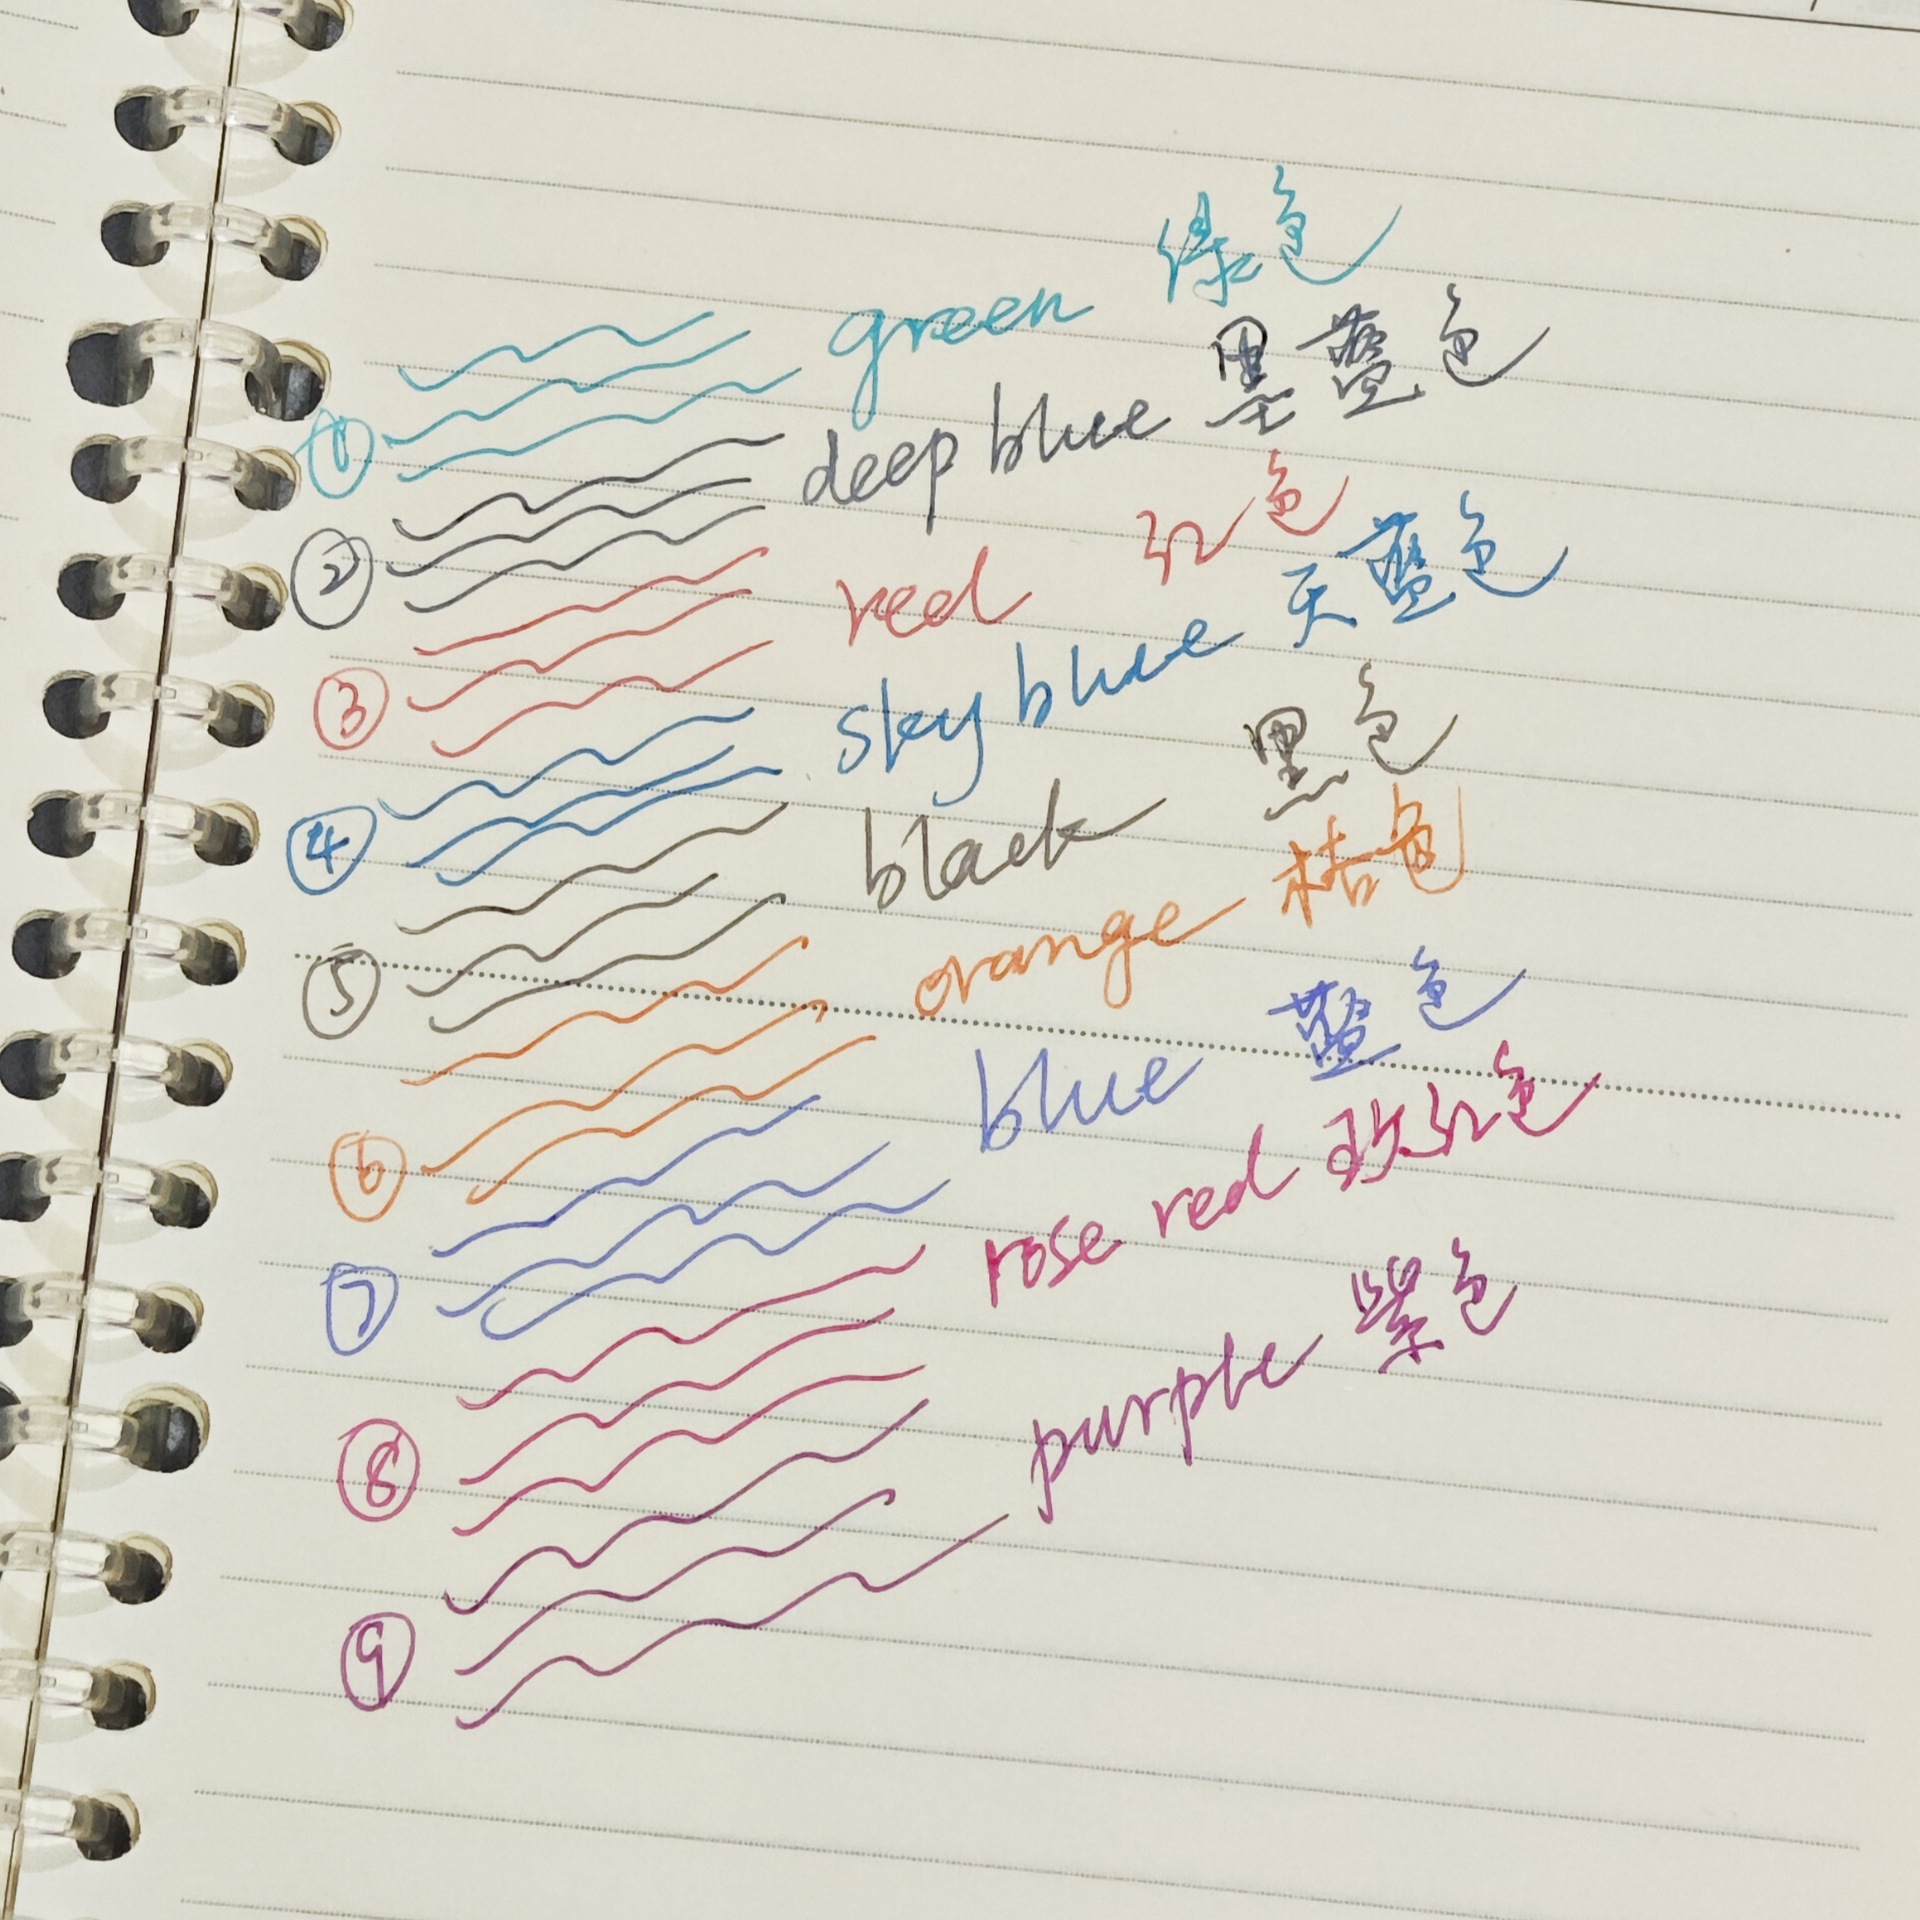 ① green 绿色
② deep blue 墨蓝色
③ red 红色
④ sky blue 天蓝色
⑤ black 黑色
⑥ orange 桔色
⑦ blue 蓝色
⑧ rose red 玫红色
⑨ purple 紫色